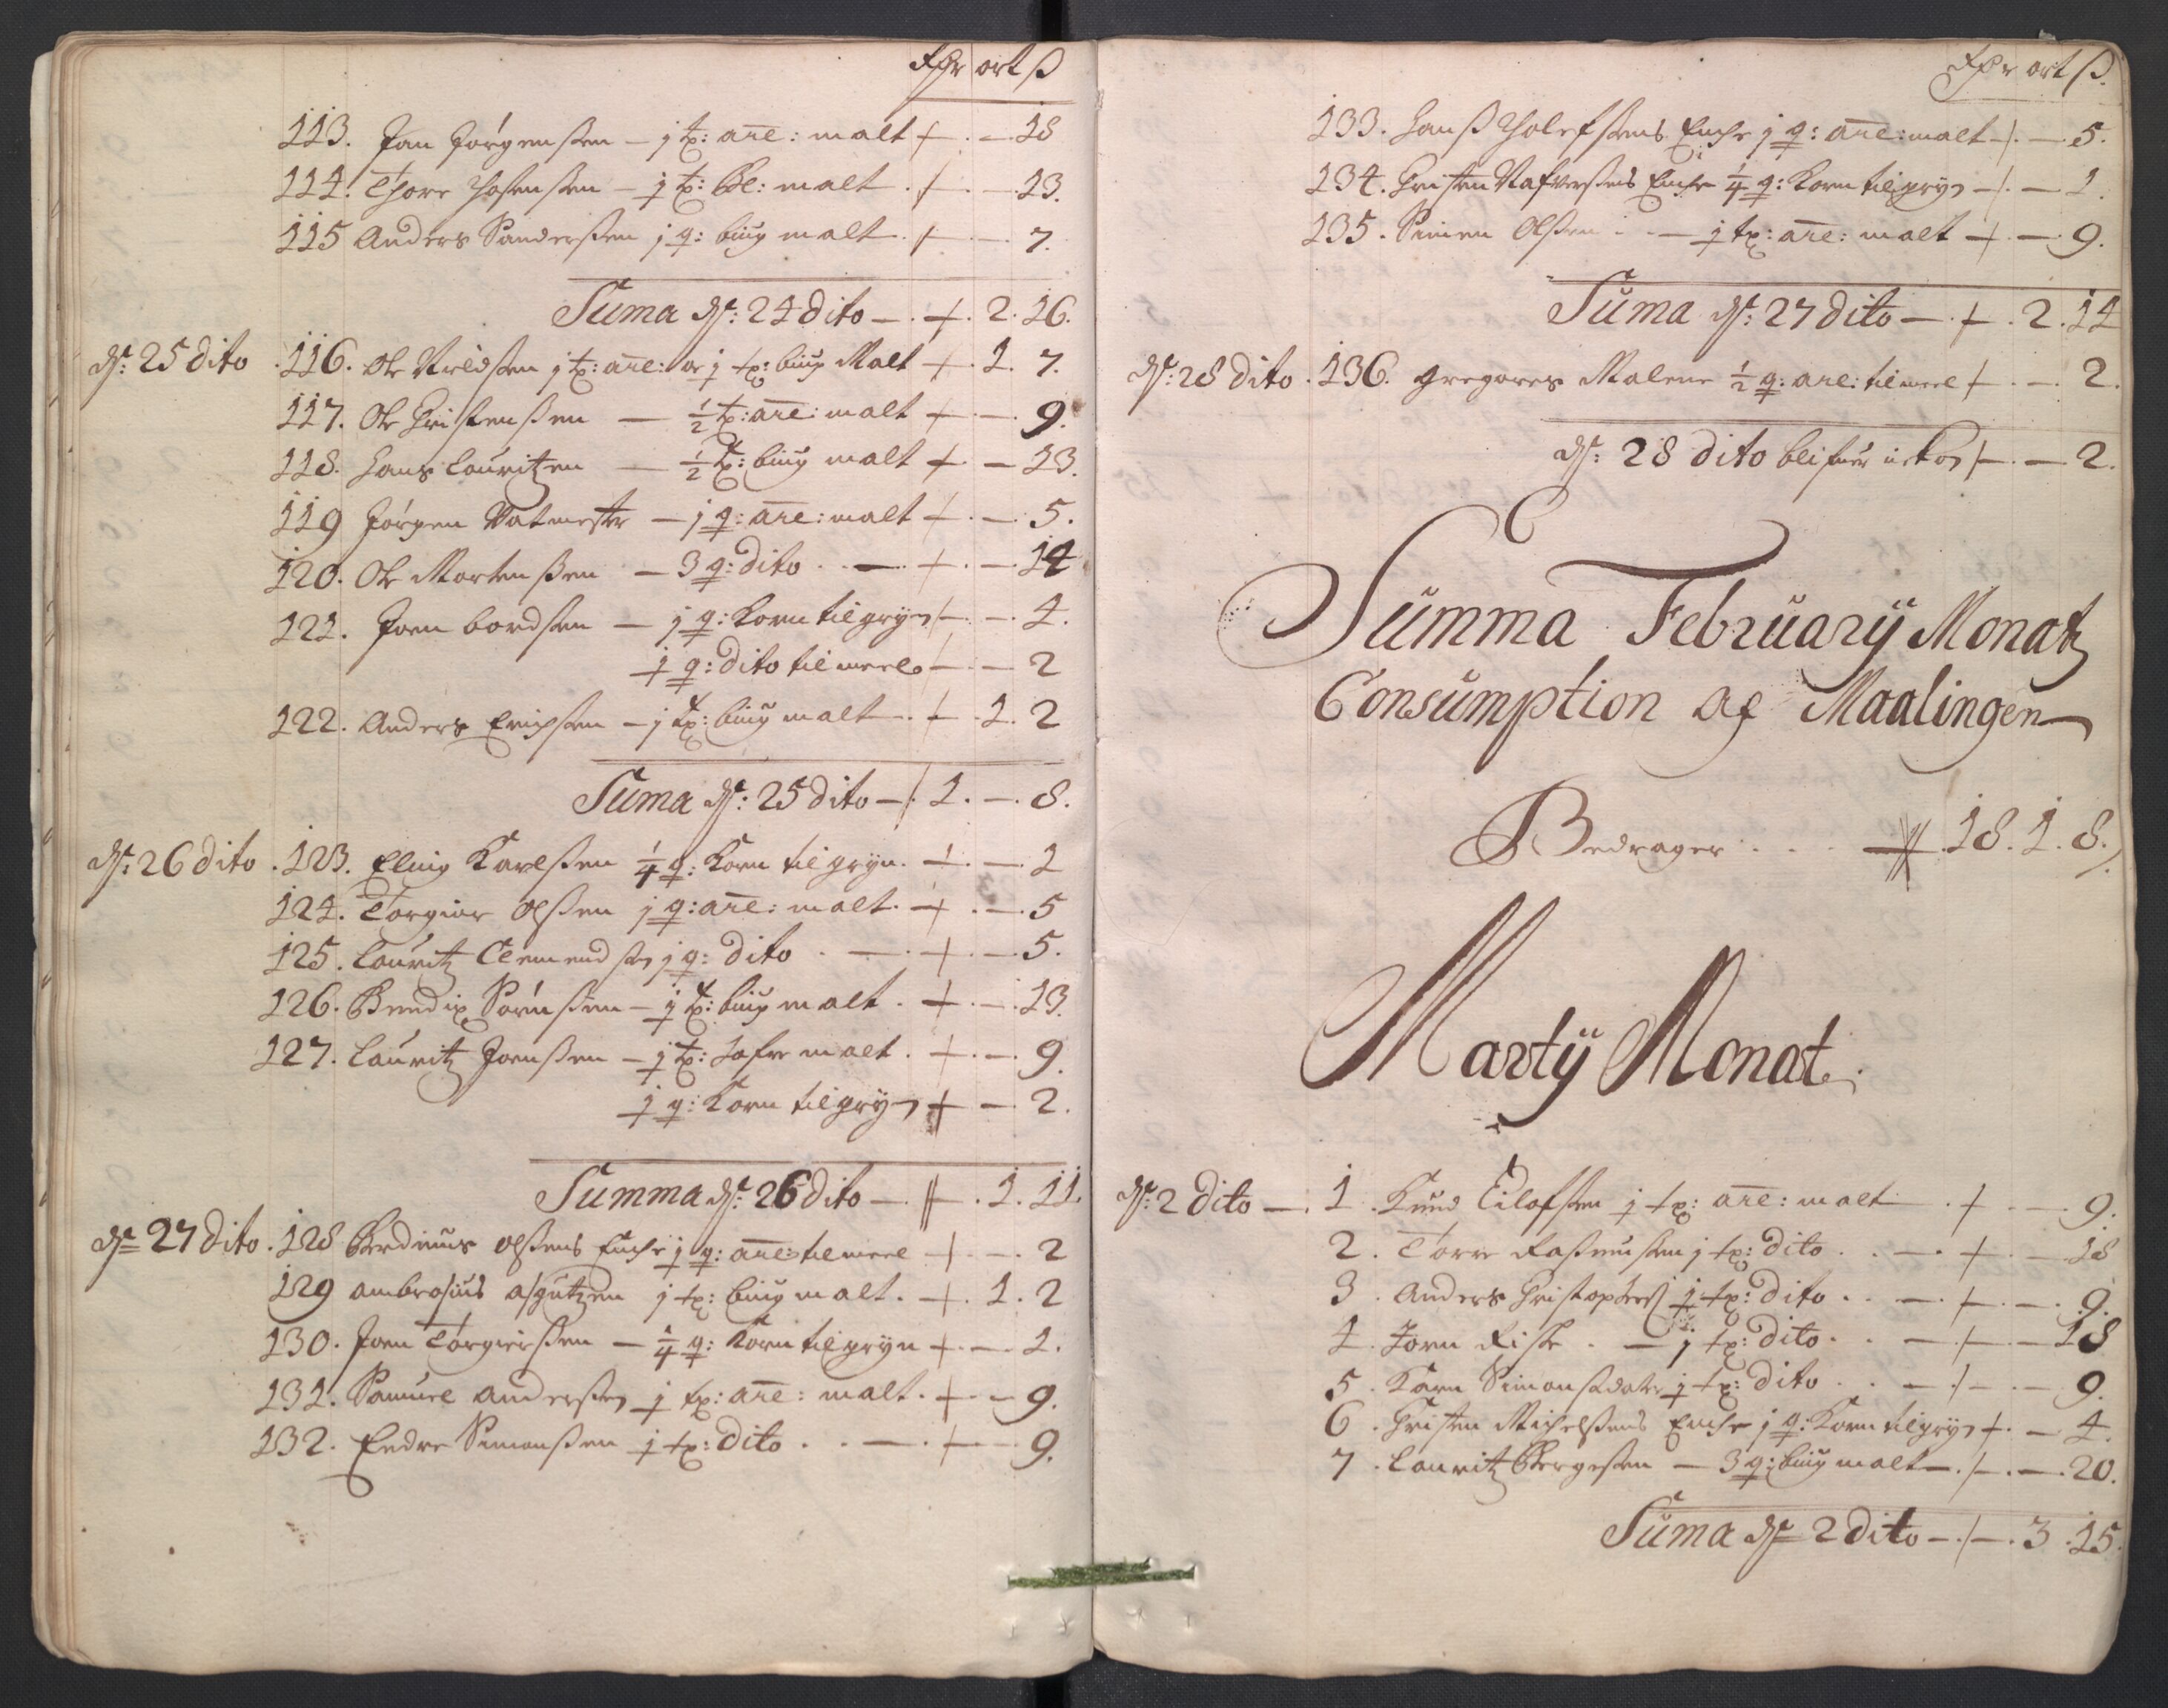 Rdr ort ß
113. Jan Jørgensßen — j tø: are: malt — 18
114. Thore Josensten — j tø: Bl: malt — 13.
115 Anders Sanderßen j q: biug malt — 7.
Suma ds: 24 dito — 2. 16.
ds: 25 dito 116. Ole Nielsßen j tø: are: oc j tø: biug Malt — 1. 7.
117. Ole Christensßen — ½ tø: are: malt — 9.
118. Hans Lauritzen — ½ tø: biug malt — 13.
119 Jørgen Vatmester — j q: are: malt — 5.
120. Ole Mortensßen — 3 q: dito — 14
121. Joen bordsten — j q: Korn til gryn — 4.
j q: dito til meel — 2
122. Anders Erichsen — j tø: biug malt — 1. 2
Suma ds: 25 dito — 1. — 8.
ds: 26 dito 123. Elling Karelsßen ¼ q: Korn til gryn — 1
124. Torgier Olsßen j q: are: malt — 5
125. Lauritz Clemendsen j q: dito — 5.
126. Bendix Sørensßen — j tø: biug malt — 13.
127. Lauritz Joensßen — j tø: Hafre malt — 9.
j q: Korn til gryn — 2.
Summa ds: 26 dito — 1. 11.
ds: 27 dito 128 Berdinus Olsßens Enche j q: are: til meel — 2
129 Ambrosius asgutzen j tø: biug malt — 1. 2
130. Joen Torgiersßen — ¼ q: Korn til gryn — 1.
131. Samuel Andersßen j tø: are: malt — 9.
132. Endre Simonsßen j tø: dito — 9.
Rdr ort ß.
133. Hanß Tholefsens Enche j q: are: malt — 5.
134. Christen Enche ¼ q: Korn til gryn — 1.
135. Simen Olsßen — j tø: are: malt — 9.
Suma ds: 27 dito — 2. 14
ds: 28 dito 136. Gregores Malene ½ q: are: til meel — 2.
ds: 28 dito — 2.
Summa February Monatz
Consumption af Maalingen
Bedrager . . . 18. 1. 8.
Marty Monat.
ds: 2 dito — 1. Knud Eilofsen j tø: are: malt — 9.
2. Torre Rasmusßen j tø: dito — 18
3. Anders Christophers j tø: dito — 9.
4. Jorn Fische — j tø: dito — 18
5. Karn Simonsdater j tø: dito — 9.
6. Christen Michelsßens Enche j q: Korn til gryn — 4.
7. Lauritz Børgesen — 3 q: biug malt — 20.
Suma ds 2 dito — 3. 15.